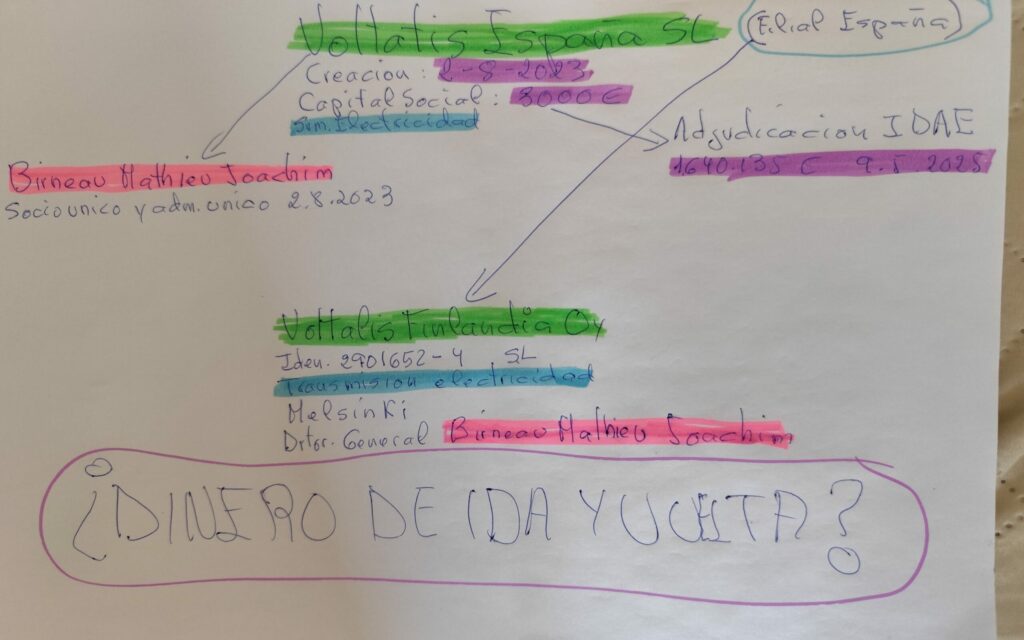 Voltalis España SL
(Filial España)
Creacion: 2-8-2023
Capital Social: 3000 €
Sum. Electricidad
Adjudicacion IDAE
1640.135 € 9.5.2025
Birneau Mathieu Joachim
Socio unico y adm. unico 2.8.2023
Voltalis Finlandia Oy
Iden. 2901652-4 SL
Transmision electricidad
Helsinki
Drtor. General Birneau Mathieu Joachim
¿DINERO DE IDA Y VUELTA?